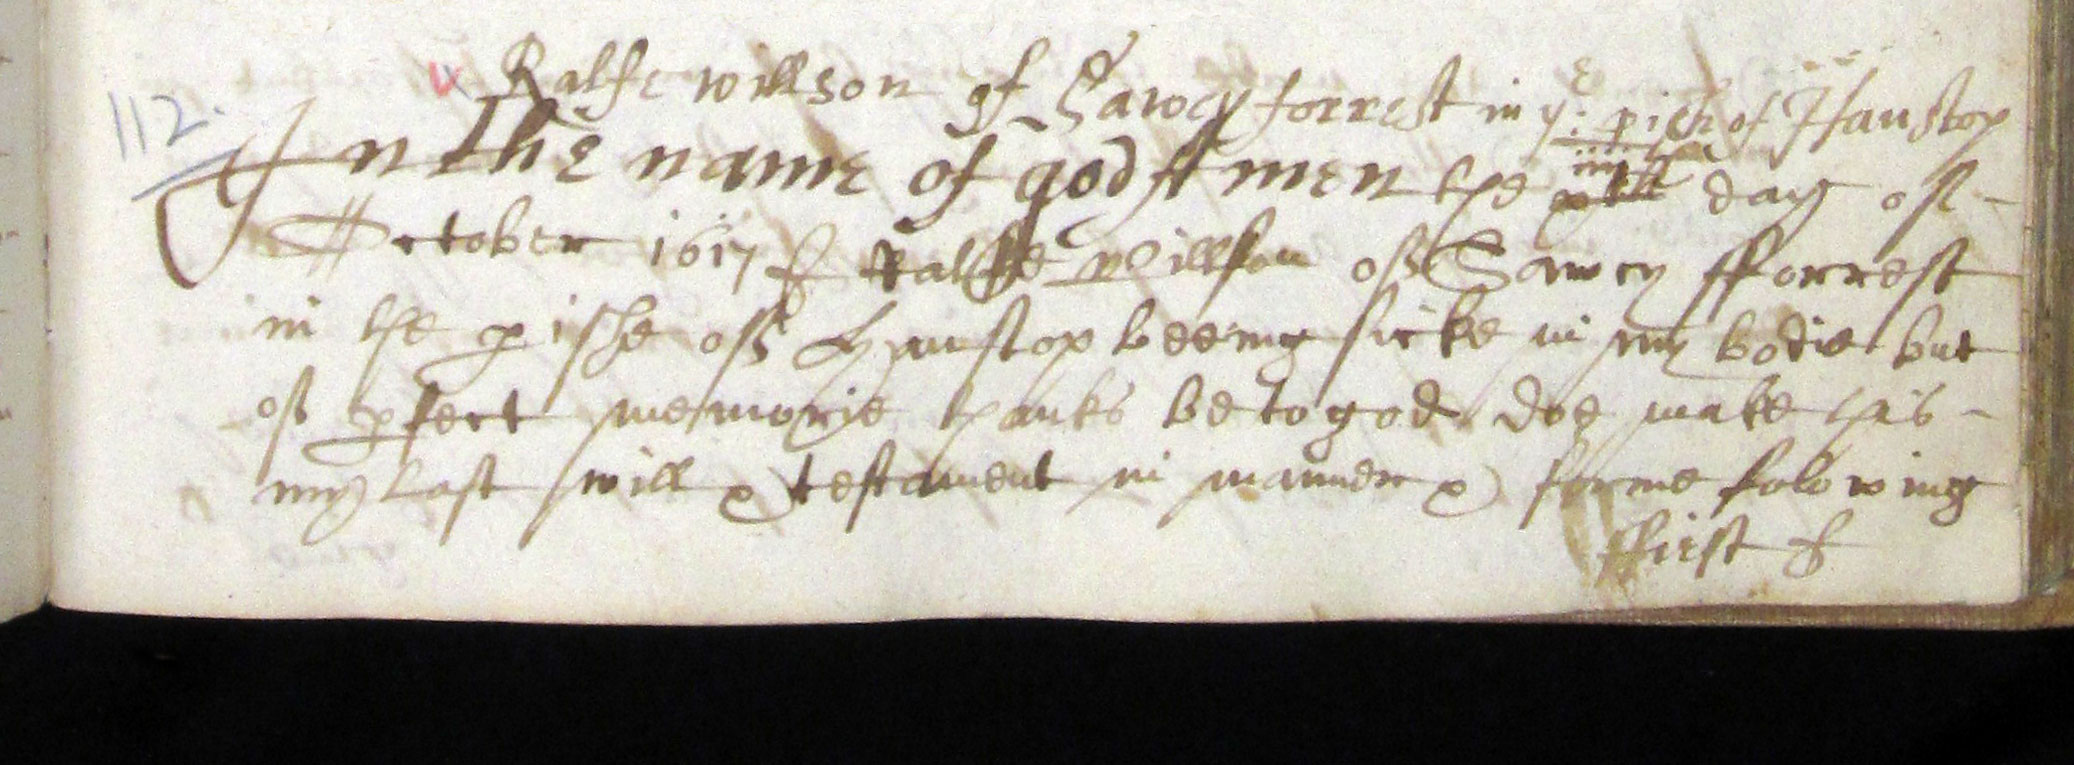 112.
Ralfe willson of Sawcy forrest in ye: pish of Hanstop
In the name of god Amen the day off
October 1617 I Ralffe Willson off Sawcy fforrest
in the pishe off Hanstop beeing sicke in my bodie but
off pfect memorie thanks be to god doe make this
my last will & testament in manner & forme folowing
ffirst I